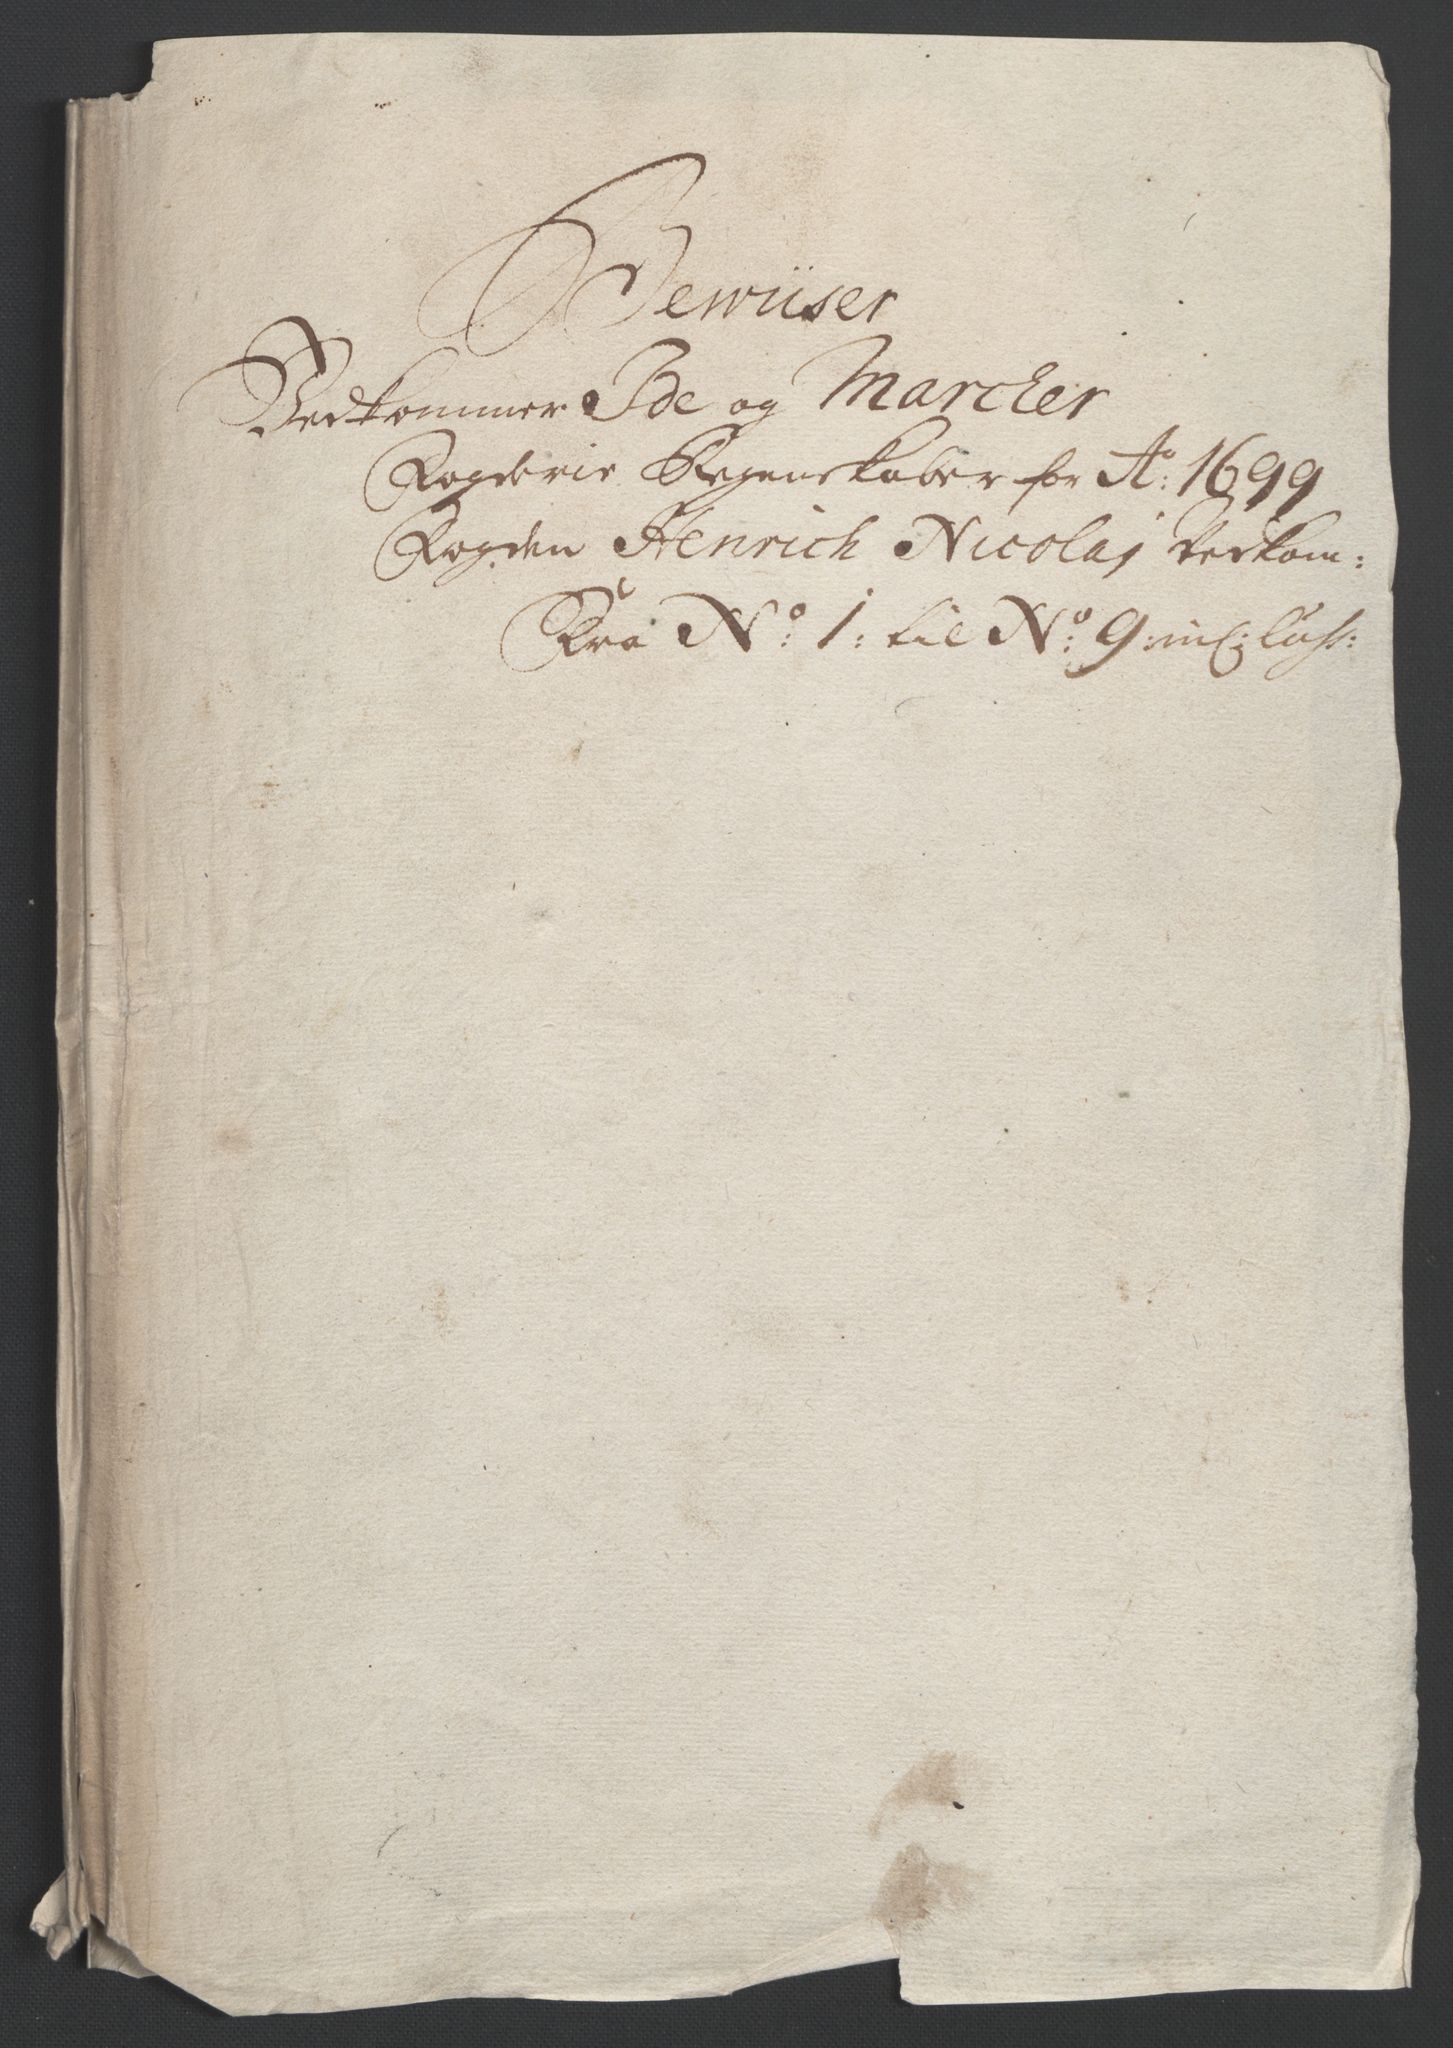 Bewiiser
Vedkommer Ide og Marcker
Fogderie Regenskaber for Ao: 1699
Fogden Henrich Nicolaj Vedkom:
Fra No: 1: til No: 9: incluss: